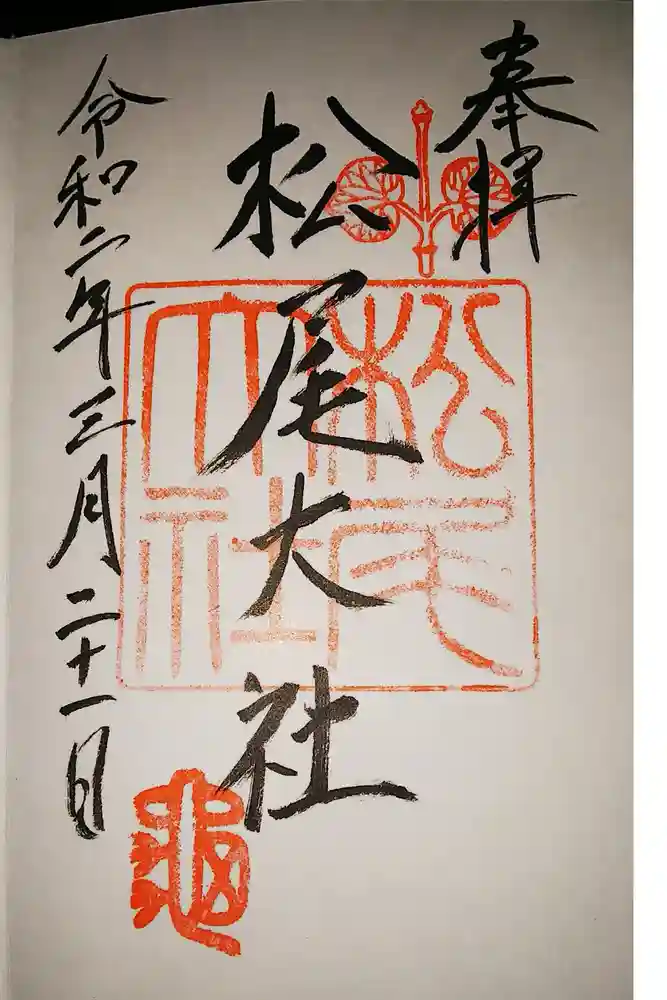 奉拝
松尾大社
令和二年三月二十一日
松尾大社
亀